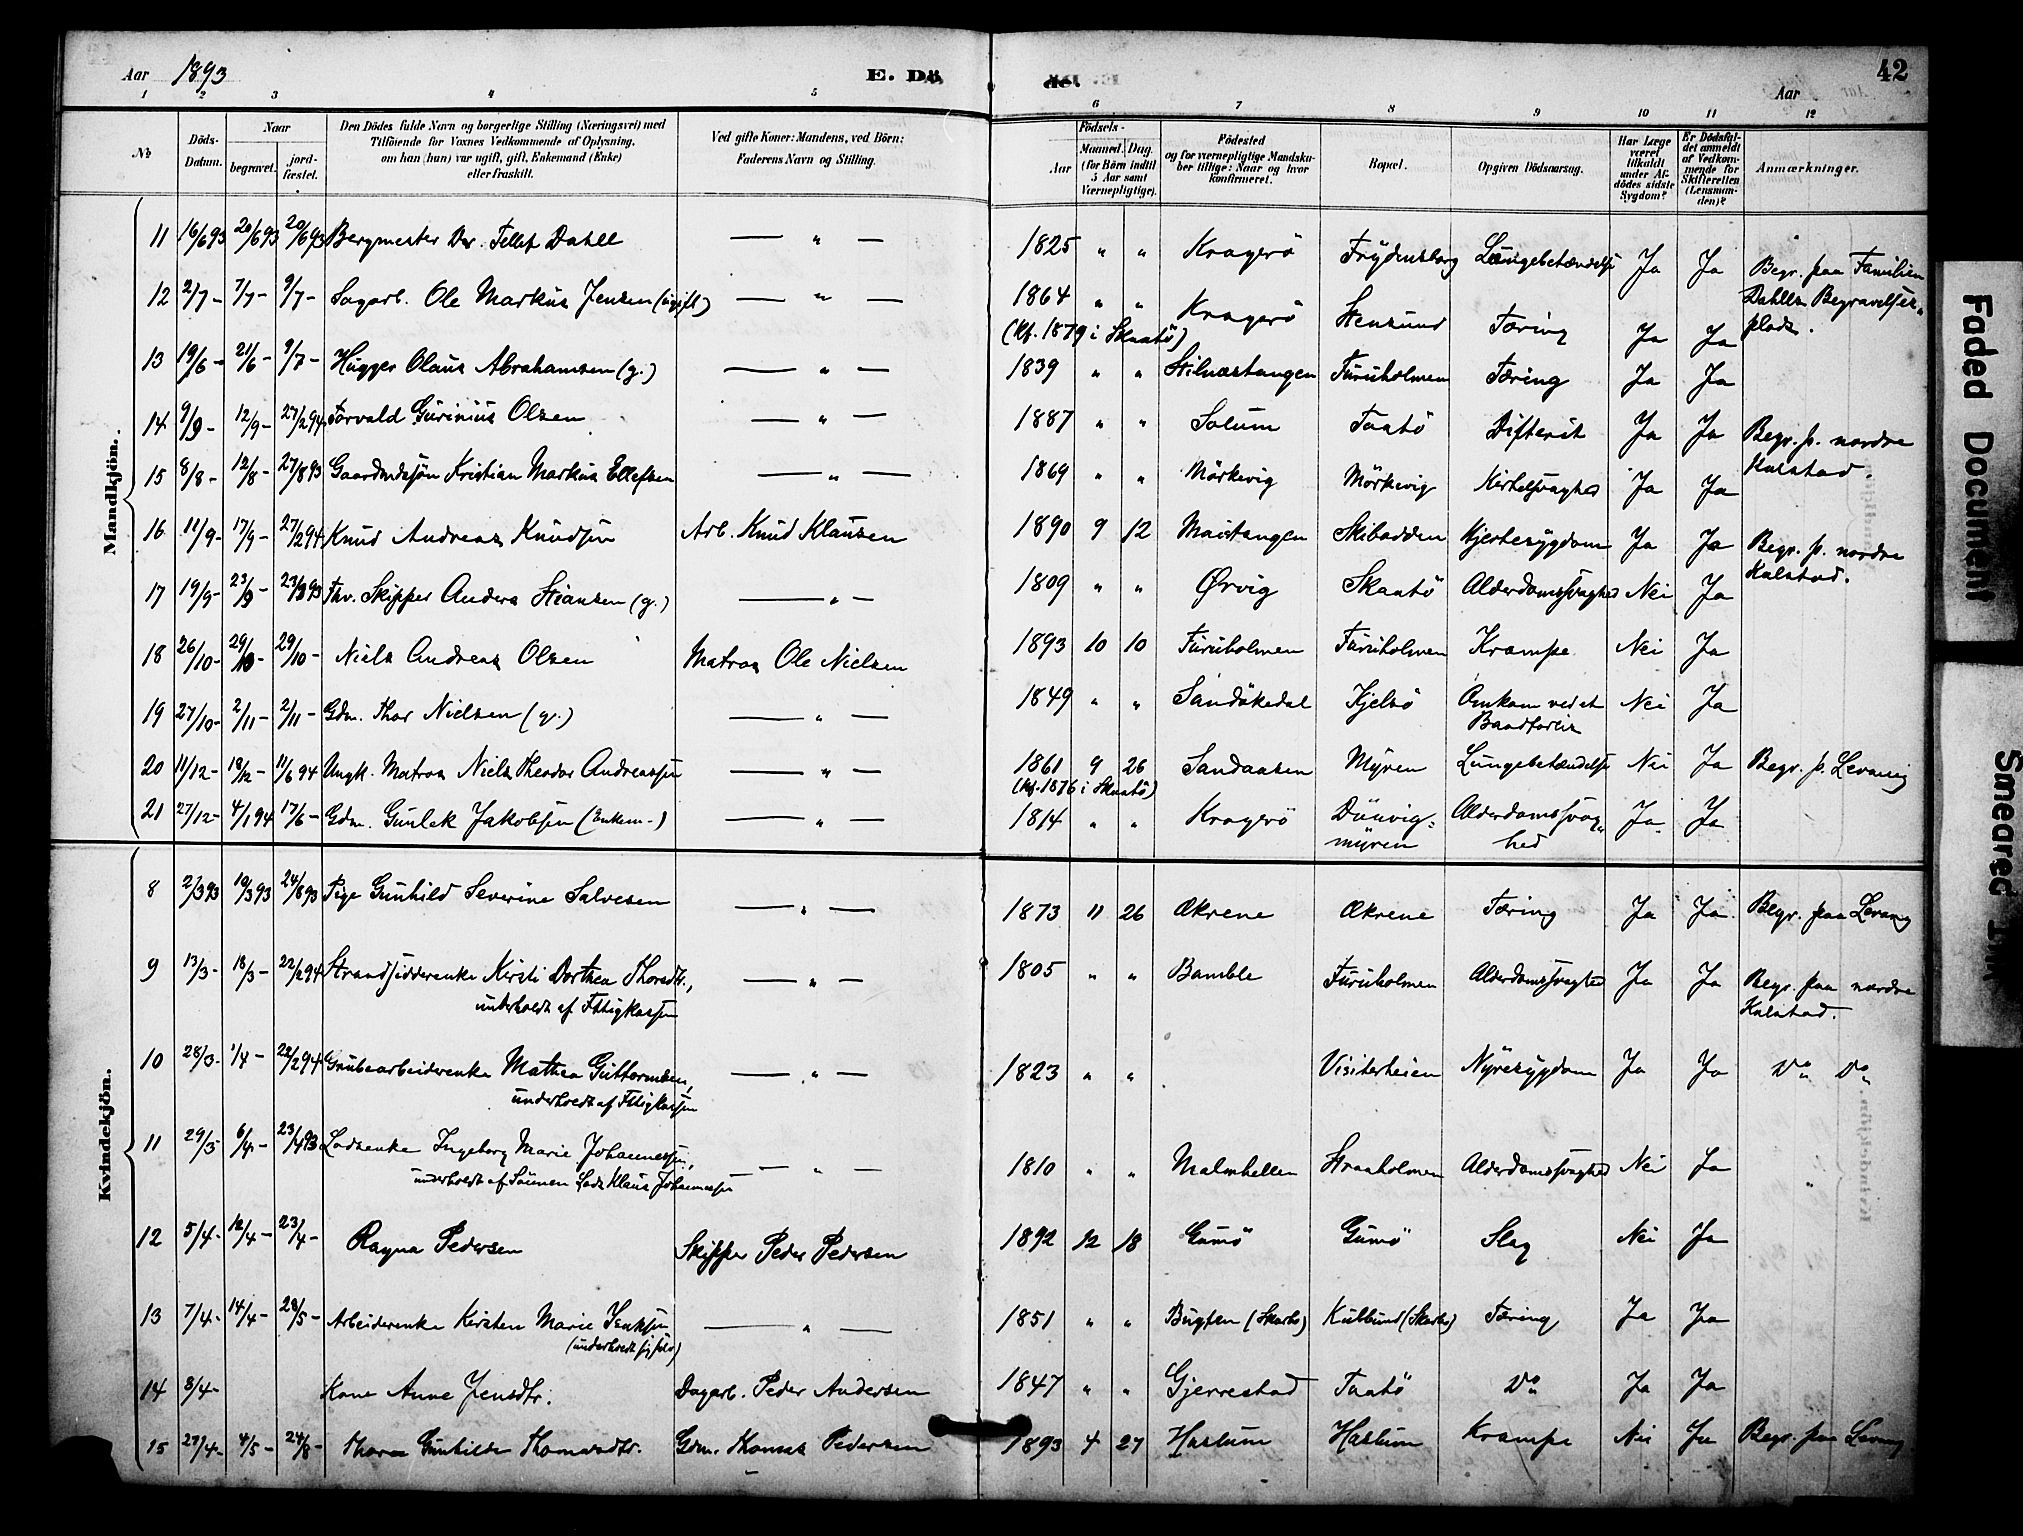 Aar 1893 E. Dö de. Aar 42
1 2 3 4 5 6 7 8 9 10 11 12
No
Döds-Datum.
Naar
begravet.
jord-fæstet.
Den Dödes fulde Navn og borgerlige Stilling (Næringsvei) med
Tilföiende for Voxnes Vedkommende af Oplysning,
om han (hun) var ugift, gift, Enkemand (Enke)
eller fraskilt.
Ved gifte Koner: Mandens, ved Börn:
Faderens Navn og Stilling.
Födsels-
Aar
Maaned. Dag.
(for Börn indtil
5 Aar samt
Værnepligtige).
Födested
og for værnepligtige Mandska-
ber tillige: Naar og hvor
konfirmeret.
Bopæl.
Opgiven Dödsaarsag.
Har Læge
været
tilkaldt
under Af-
dödes sidste
Sygdom?
Er Dödsfal-
det anmeldt
af Vedkom-
mende for
Skifteretten
(Lensman-
den)?
Anmærkninger.
Mandkjön.
11 16/6 93 20/6 93 20/6 93 Bergmester Dr. Tellef Dahll — „ — 1825 „ „ Kragerö Frydensborg Lungebetændelse Ja Ja Begr. paa Familien
Dahlls Begravelses-
plads.
12 2/7 - 7/7 - 9/7 - Sagarb. Ole Markus Jensen (ugift) — „ — 1864 „ „ Kragerö Stensund Tæring Ja Ja
(kf. 1879 i Skaatö)
13 19/6 - 21/6 - 9/7 - Hugger Olaus Abrahamsen (g.) — „ — 1839 „ „ Stilnæstangen Furuholmen Tæring Ja Ja
14 9/9 - 12/9 - 27/2 94 Torvald Gurinius Olsen — „ — 1887 „ „ Solum Taatö Difterit Ja Ja Begr. p. nordre
Kalstad.
15 8/8 - 12/8 - 27/8 93 Gaardmdssön Kristian Markus Ellefsen — „ — 1869 „ „ Mörkevig Mörkevig Kirtelsvaghed Ja Ja
16 11/9 - 17/9 - 27/2 94 Knud Andreas Knudsen Arb. Knud Klausen 1890 9 12 Skibodden Hjertesygdom Ja Ja Begr. p. nordre
Kalstad.
17 19/9 - 23/9 - 23/9 93 Fhv. Skipper Anders Stiansen (g.) — „ — 1809 „ „ Ørvig Skaatö Alderdomssvaghed Nei Ja
18 26/10 - 29/10 - 29/10 - Niels Andreas Olsen Matros Ole Nielsen 1893 10 10 Furuholmen Furuholmen Krampe Nei Ja
19 27/10 - 2/11 - 2/11 - Gdm. Thor Nielsen (g.) — „ — 1849 „ „ Sandökedal Kjelsö Omkom ved et
Baadforlis Nei Ja
20 11/12 - 18/12 - 11/6 94 Ungk. Matros Niels Theodor Andreassen — „ — 1861 9 26 Sandaasen Myren Lungebetændelse Nei Ja Begr. p. Levang
(kf. 1876 i Skaatö)
21 27/12 - 4/1 94 17/6 - Gdm. Gunlek Jakobsen (Enkem.) — „ — 1814 „ „ Kragerö Dunvig-
myren Alderdomssvag-
hed Ja Ja
Kvindekjön.
8 2/3 93 10/3 93 24/8 93 Pige Gunhild Severine Salvesen — „ — 1873 11 26 Ækrene Ækrene Tæring Ja Ja Begr. paa Levang
9 13/3 - 18/3 - 22/2 94 Strandsidderenke Kirsti Dorthea Thorsdtr.,
underholdt af Fttigkassen — „ — 1805 „ „ Bamble Furuholmen Alderdomssvaghed Ja Ja Begr. paa nordre
Kalstad.
10 28/3 - 1/4 - 22/2 94 Grubearbeiderenke Mathea Guttormsen,
underholdt af Fttigkassen — „ — 1823 „ „ Visiterheien Nyresygdom Ja Ja Do Do
11 29/3 6/4 - 23/4 93 Lodsenke Ingeborg Marie Johannessen,
underholdt af Sönnen Lods Klaus Johannessen — „ — 1810 „ „ Malmhellen Straaholmen Alderdomssvaghed Nei Ja „
12 5/4 - 12/4 - 23/4 - Ragna Pedersen Skipper Peder Pedersen 1892 12 18 Gumö Gumö Slag Nei Ja
13 7/4 - 14/4 - 28/5 - Arbeiderenke Kirsten Marie
(underholdt sig selv) — „ — 1851 „ „ Bugten (Skaatö) (Skaatö) Tæring Ja Ja
14 8/4 - Kone Anne Jensdtr. Dagarb. Peder Andersen 1847 „ „ Gjerrestad Taatö Do Ja Ja
15 27/4 - 4/5 - 24/8 - Thora Gunhilde Thomasdtr. Gdm. Thomas Pedersen 1893 4 27 Haslum Haslum Krampe Nei Ja Begr. paa Levang
Faded Document
Smeared Ink